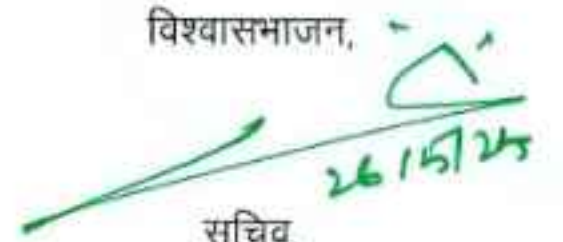 विश्वासभाजन,
26/5/25
सचिव